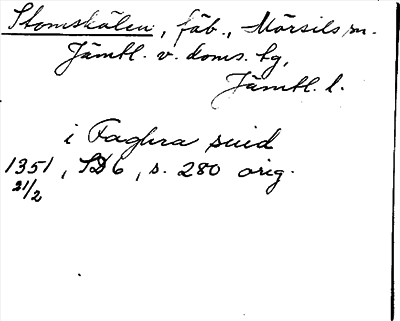 Stomskålen, fäb., Mörsils sn.
Jämtl. v. doms. tg,
Jämtl. l.
i Faghra suid
1351, SD 6, s. 280 orig.
21/2